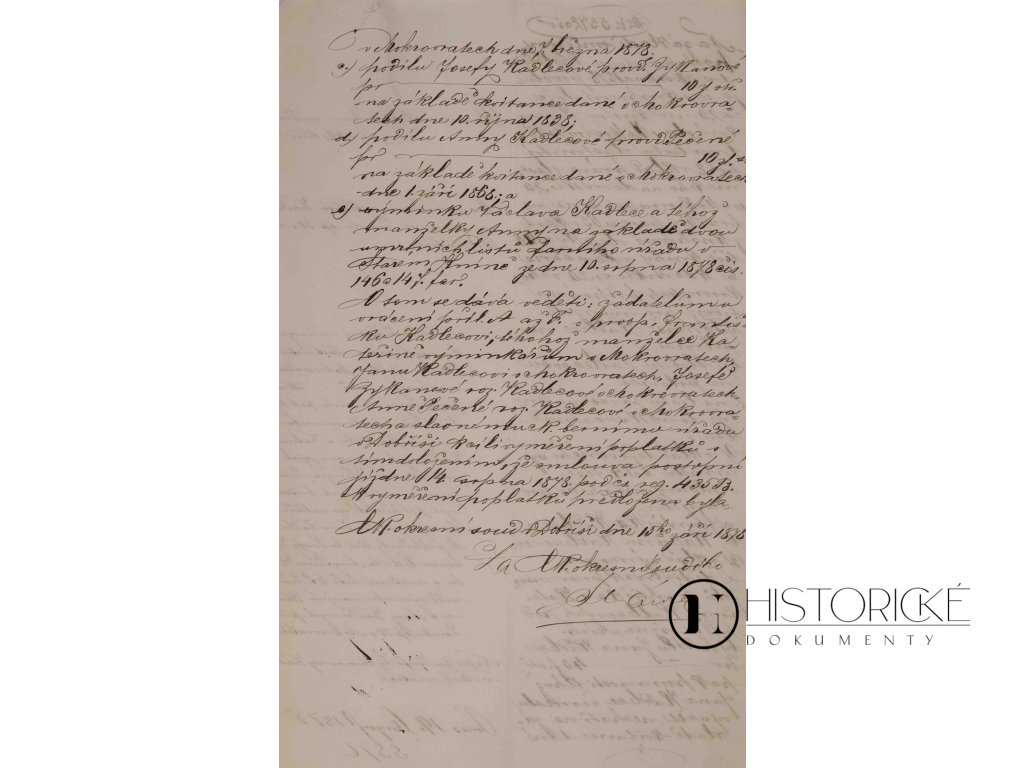 v Mokrovratech dne 7 března 1878.
c.) podílu Josefy Kadlecové prov. Zykanové
pr 10 zl.
na základě kvitance dané v Mokrovra-
tech dne 10. října 1838;
d) podílu Anny Kadlecové prov. Pečené
pr 10 zl.
na základě kvitance dané v Mokrovratech
dne 1. září 1868; a
e) výminku Václava Kadlece a téhož
manželky Anny na základě dvou
úmrtních listů farního úřadu v
Starém Kníně ze dne 10. srpna 1878 čís.
146 a 147. far.
O tom se dává věděti: žadatelům u
vrácení příl. A až F. v prosp. Františ-
ku Kadlecovi, téhohož manželce Ka-
teřině výminkářům v Mokrovratech,
Janu Kadlecovi v Mokrovratech, Josefě
Zykanové roz. Kadlecové v Mokrovratech
Anně Pečené roz. Kadlecové v Mokrovra-
tech a slavnému k. bernímu úřadu
v Dobříši k cíli vyměření poplatků s
tím doložením, že smlouva postupní
již dne 14. srpna 1878 pod čís. reg. 435 B.
k vyměření poplatků předložena byla.
K. okresní soud v Dobříši dne 15ho září 1878
Za K. okresního sudího
HISTORICKÉ
DOKUMENTY